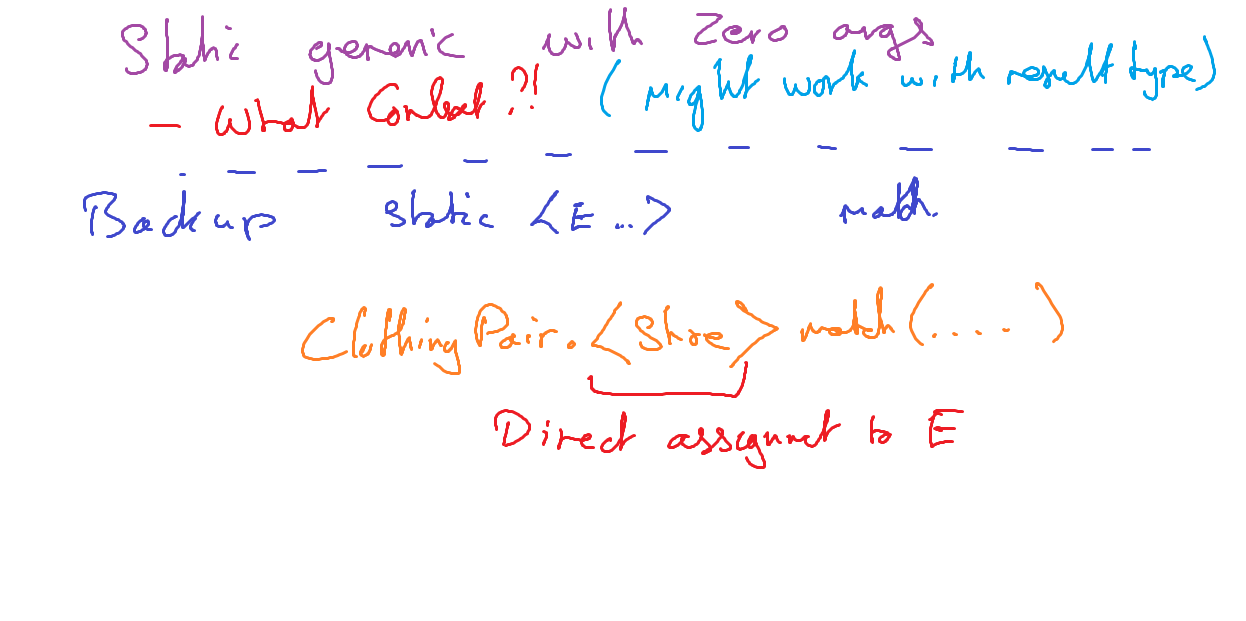 Static generic with Zero args
- What Context?! (might work with result type)
Backup static <E ...> match.
ClothingPair.<Shoe> match(.....)
Direct assignment to E